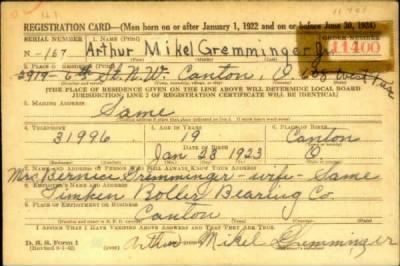 REGISTRATION CARD—(Men born on or after January 1, 1922 and on or before June 30, 1924)
SERIAL NUMBER
ORDER NUMBER
N-167 Arthur Mikel Gremminger Jr. 11400
(First) (Middle) (Last)
2919-6th St. N.W. Canton, O
(THE PLACE OF RESIDENCE GIVEN ON THE LINE ABOVE WILL DETERMINE LOCAL BOARD
JURISDICTION; LINE 2 OF REGISTRATION CERTIFICATE WILL BE IDENTICAL)
3. MAILING ADDRESS
Same
4. TELEPHONE 5. AGE IN YEARS 6. PLACE OF BIRTH
31996 19 Canton
DATE OF BIRTH
Jan 28 1923 O
7. NAME AND ADDRESS OF PERSON WHO WILL ALWAYS KNOW YOUR ADDRESS
Mrs. Bernice Gremminger - wife - Same
8. EMPLOYER'S NAME AND ADDRESS
Timken Roller Bearing Co.
9. PLACE OF EMPLOYMENT OR BUSINESS
Canton
I AFFIRM THAT I HAVE VERIFIED ABOVE ANSWERS AND THAT THEY ARE TRUE.
D. S. S. Form 1
Arthur Mikel Gremminger